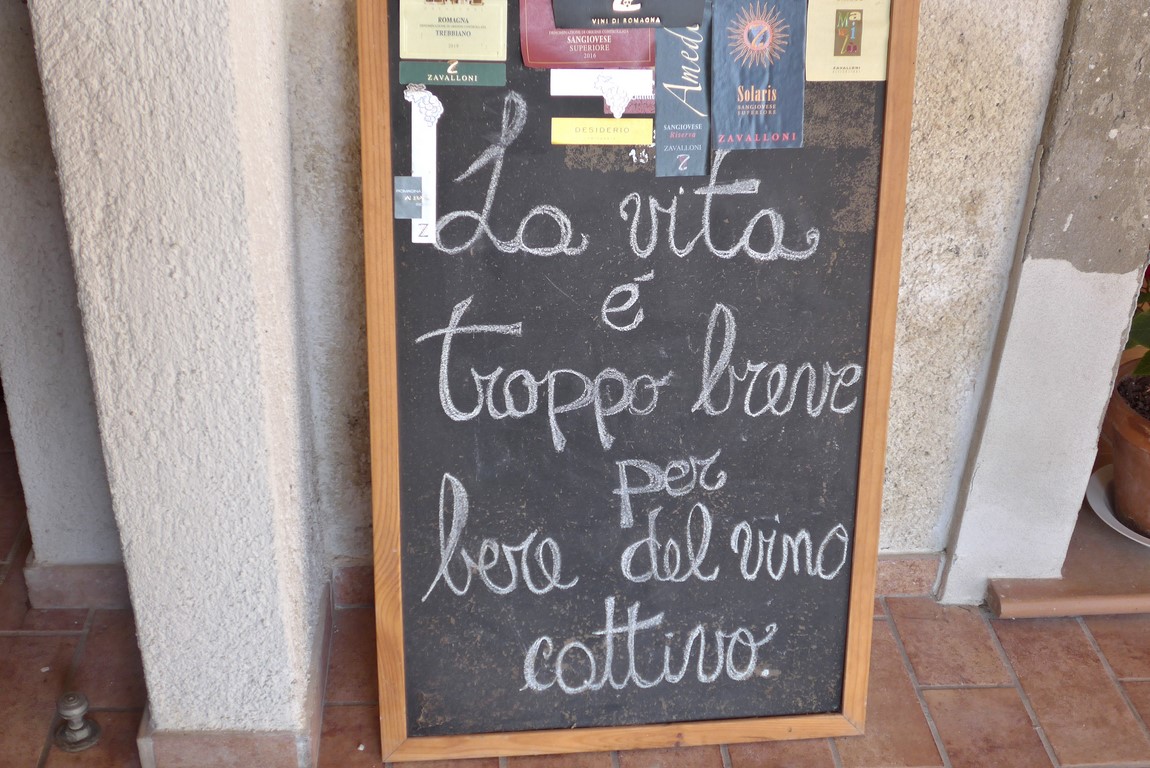 ROMAGNA
TREBBIANO
ZAVALLONI
SANGIOVESE
SUPERIORE
VINI DI ROMAGNA
DESIDERIO
SANGIOVESE
Riserva
ZAVALLONI
Solaris
SANGIOVESE
SUPERIORE
ZAVALLONI
ZAVALLONI
La vita
é
troppo breve
per
bere del vino
cattivo.